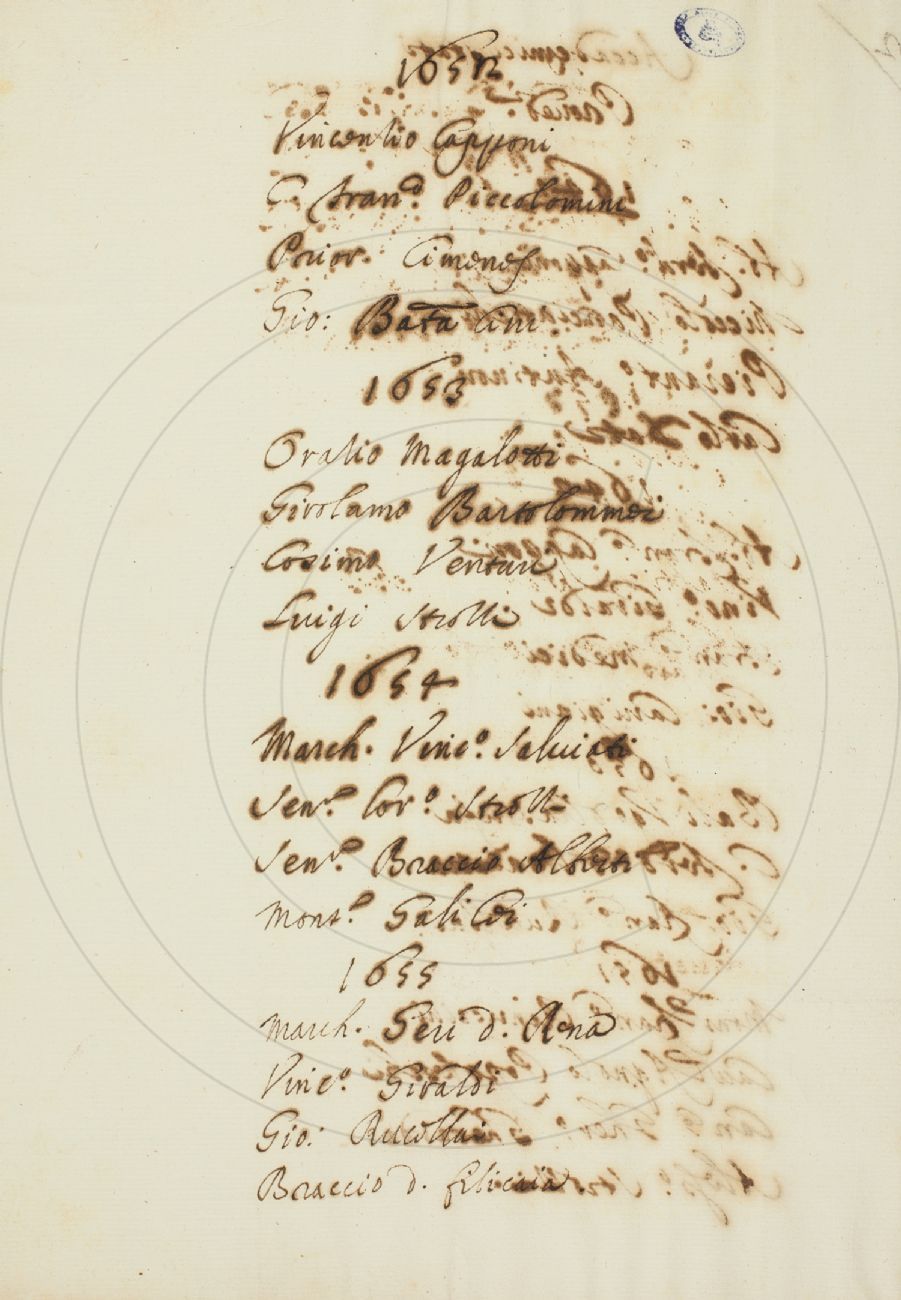 1652
Vincentio Capponi
C. Fran.º Piccolomini
Prior. Cimenes
Gio: Bata Cini
1653
Oratio Magalotti
Girolamo Bartolommei
Cosimo Venturi
Luigi Strozzi
1654
March. Vinc.º Salviati
Sen.re Lor.º Strozzi
Sen.re Braccio Alberti
Mons.re
1655
March. Geri d. Rena
Vinc.º Giraldi
Gio: Rucellai
Braccio d. filicaia